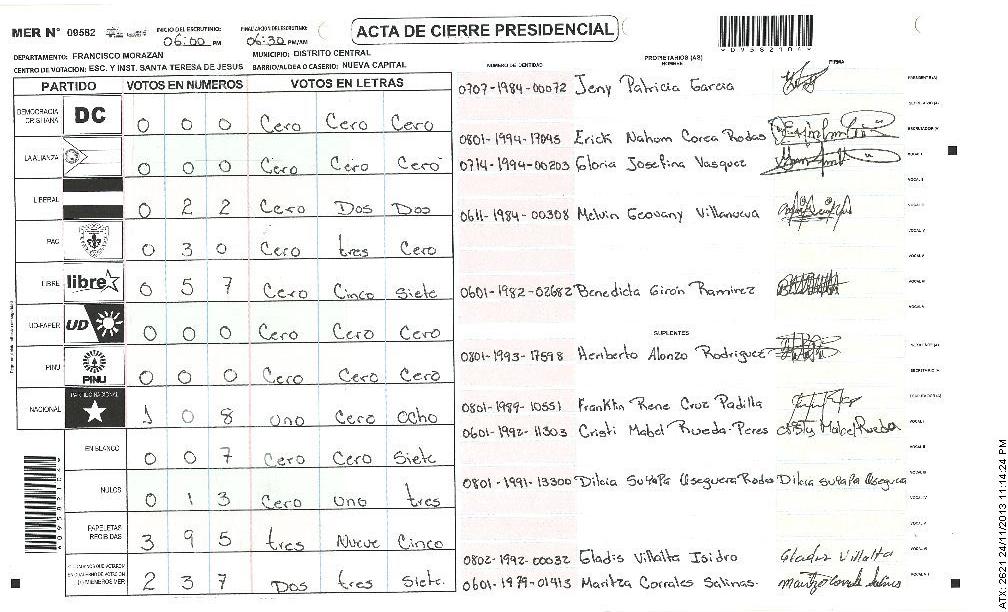 MER N° 09582 INICIO DEL ESCRUTINIO: 06:00 PM FINALIZACION DEL ESCRUTINIO: 06:30 PM/AM ACTA DE CIERRE PRESIDENCIAL
DEPARTAMENTO: FRANCISCO MORAZAN MUNICIPIO: DISTRITO CENTRAL
CENTRO DE VOTACION: ESC. Y INST. SANTA TERESA DE JESUS BARRIO/ALDEA O CASERIO: NUEVA CAPITAL
PARTIDO VOTOS EN NUMEROS VOTOS EN LETRAS
DEMOCRACIA CRISTIANA DC 0 0 0 Cero Cero Cero
LA ALIANZA 0 0 0 Cero Cero Cero
LIBERAL 0 2 2 Cero Dos Dos
PAC 0 3 0 Cero tres Cero
LIBRE libre 0 5 7 Cero Cinco siete
UD-FAPER UD 0 0 0 Cero Cero Cero
PINU PINU 0 0 0 Cero Cero Cero
NACIONAL PARTIDO NACIONAL 1 0 8 uno Cero ocho
EN BLANCO 0 0 7 Cero Cero Siete
NULOS 0 1 3 Cero uno tres
PAPELETAS RECIBIDAS 3 9 5 tres Nueve Cinco
2 3 7 Dos tres Siete.
NUMERO DE IDENTIDAD PROPIETARIOS (AS) NOMBRE FIRMA
0707-1984-00072 Jeny Patricia Garcia
0801-1994-17045 Erick Nahum Corea Rodas
0714-1994-00203 Gloria Josefina Vasquez
0611-1984-00308 Melvin Geovany Villanueva
0601-1982-02682 Benedicta Girón Ramirez
SUPLENTES
0801-1993-17598 Heriberto Alonzo Rodriguez
0801-1989-10551 Franklin Rene Cruz Padilla
0601-1992-11303 Cristi Mabel Rueda Peres Cristy Mabel Rueda
0801-1991-13300 Dilcia Suyapa Oseguera Rodas Dilcia suyapa Oseguera
0802-1992-00032 Gladis Villalta Isidro Gladis Villalta
0601-1979-01913 Maritza Corrales Salinas.
ATX: 2621 24/11/2013 11:14:24 PM